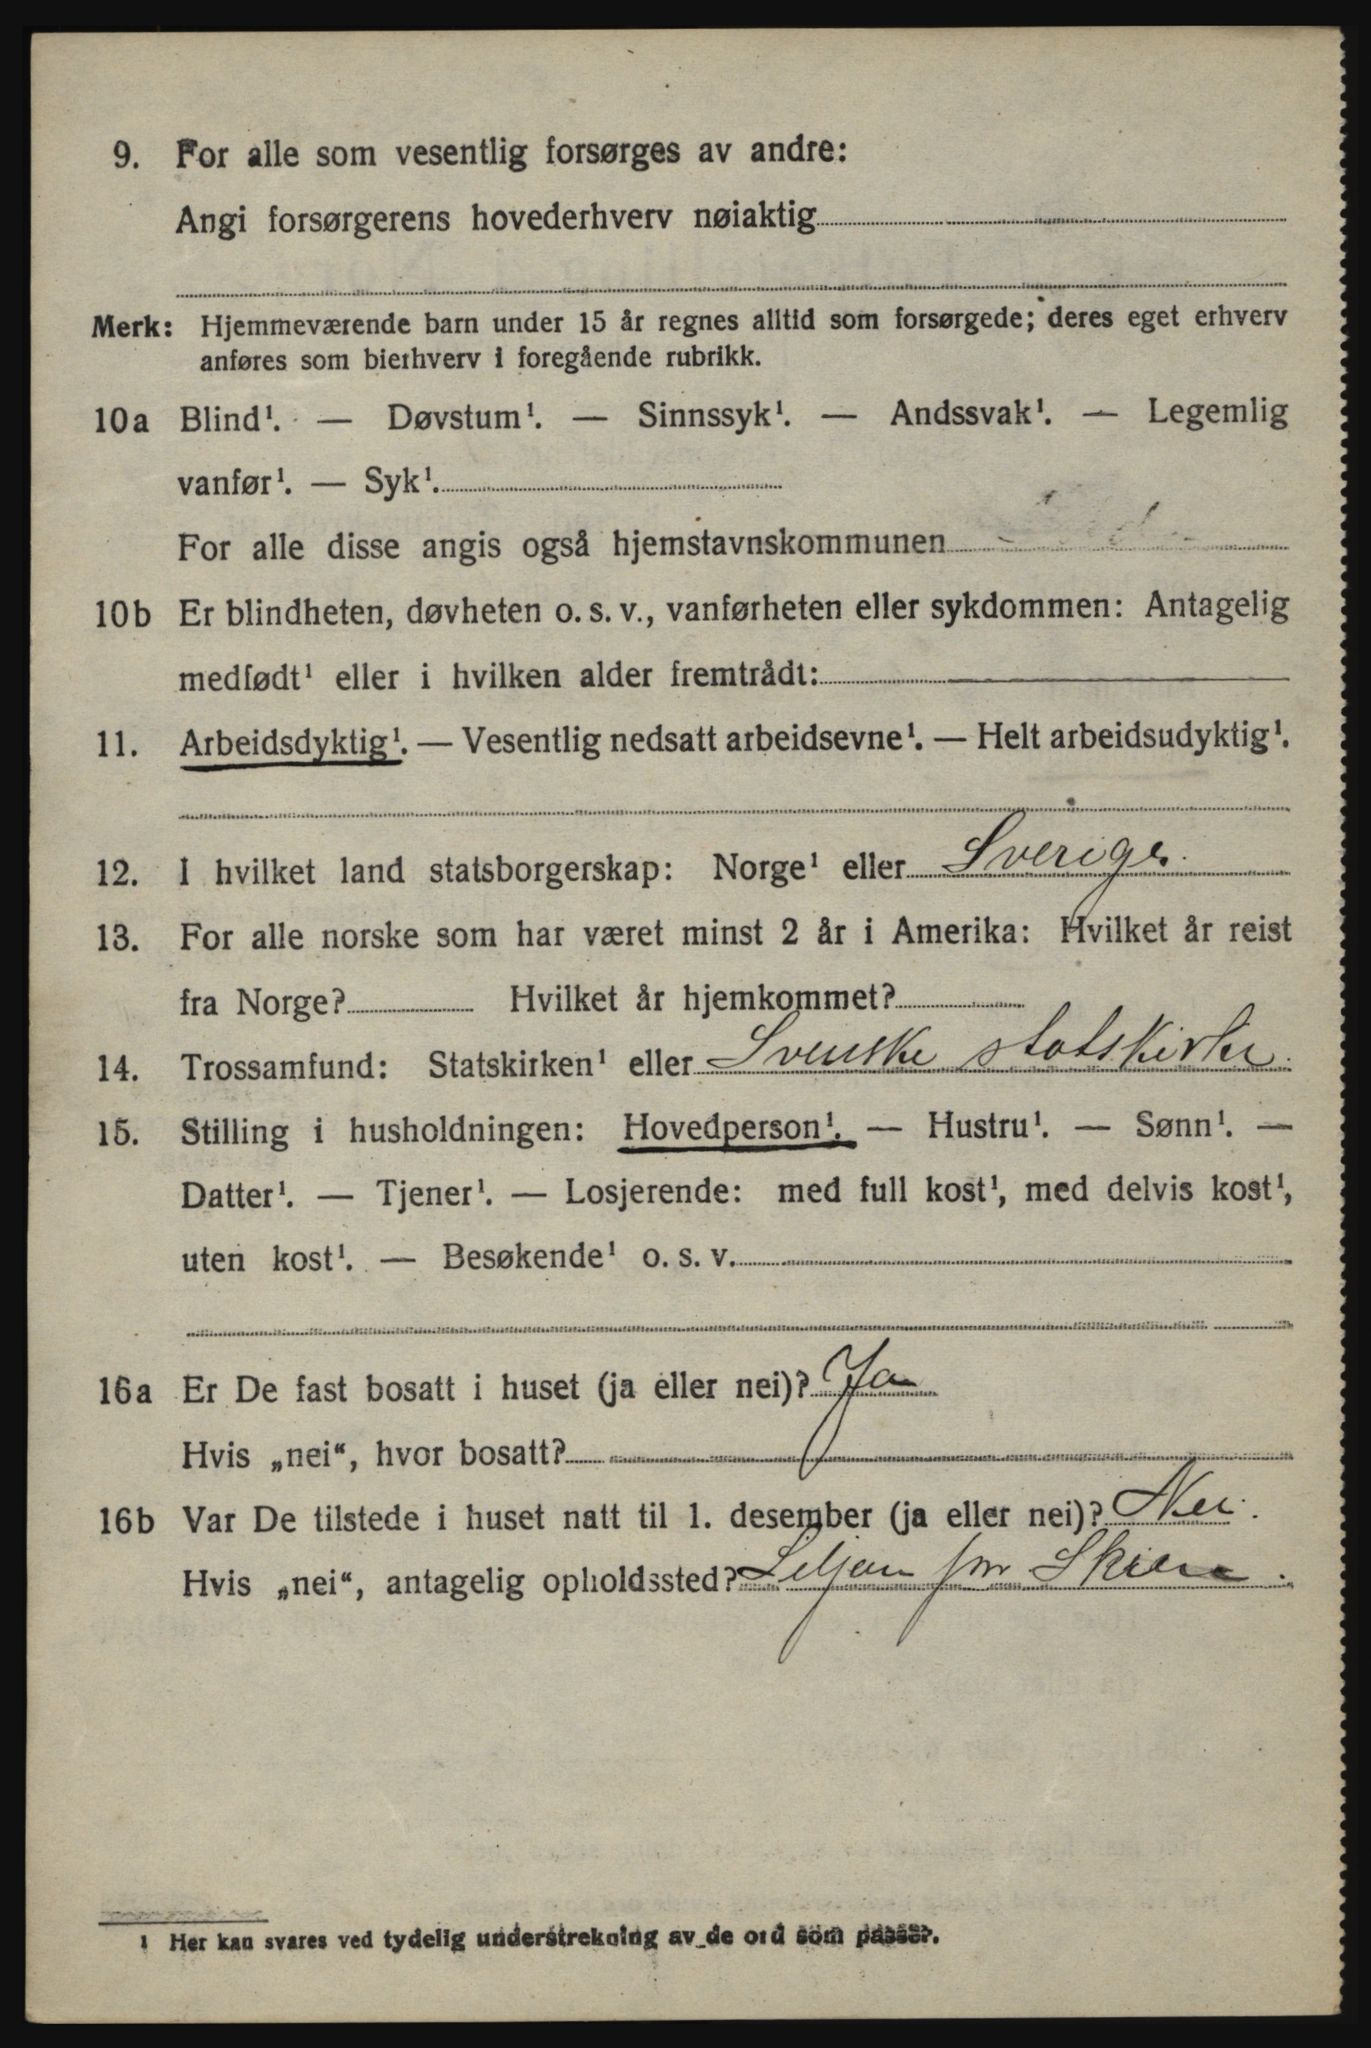 9. For alle som vesentlig forsørges av andre:
Angi forsørgerens hovederhverv nøiaktig
Merk: Hjemmeværende barn under 15 år regnes alltid som forsørgede; deres eget erhverv
anføres som bierhverv i foregående rubrikk.
10a Blind¹. — Døvstum¹. — Sinnssyk¹. — Andssvak¹. — Legemlig
vanfør¹. — Syk¹.
For alle disse angis også hjemstavnskommunen
10b Er blindheten, døvheten o. s. v., vanførheten eller sykdommen: Antagelig
medfødt¹ eller i hvilken alder fremtrådt:
11. Arbeidsdyktig¹. — Vesentlig nedsatt arbeidsevne¹. — Helt arbeidsudyktig¹.
12. I hvilket land statsborgerskap: Norge¹ eller Sverige.
13. For alle norske som har været minst 2 år i Amerika: Hvilket år reist
fra Norge? Hvilket år hjemkommet?
14. Trossamfund: Statskirken¹ eller Svenske statskirke.
15. Stilling i husholdningen: Hovedperson¹. — Hustru¹. — Sønn¹. —
Datter¹. — Tjener¹. — Losjerende: med full kost¹, med delvis kost¹,
uten kost¹. — Besøkende¹ o. s. v.
16a Er De fast bosatt i huset (ja eller nei)? Ja
Hvis „nei“, hvor bosatt?
16b Var De tilstede i huset natt til 1. desember (ja eller nei)? Nei.
Hvis „nei“, antagelig opholdssted? Skien.
1 Her kan svares ved tydelig understrekning av de ord som passer.